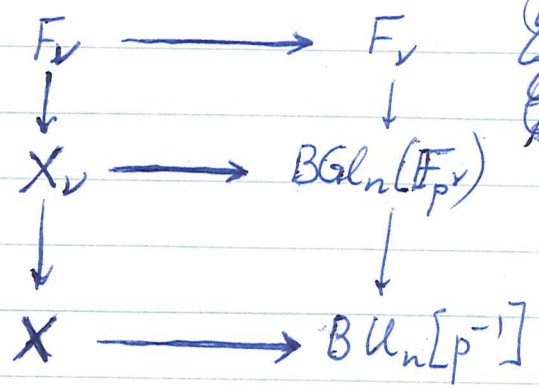 F_ν → F_ν
↓ ↓
X_ν → BGl_n(F_{p^ν})
↓ ↓
X → BU_n[p^{-1}]